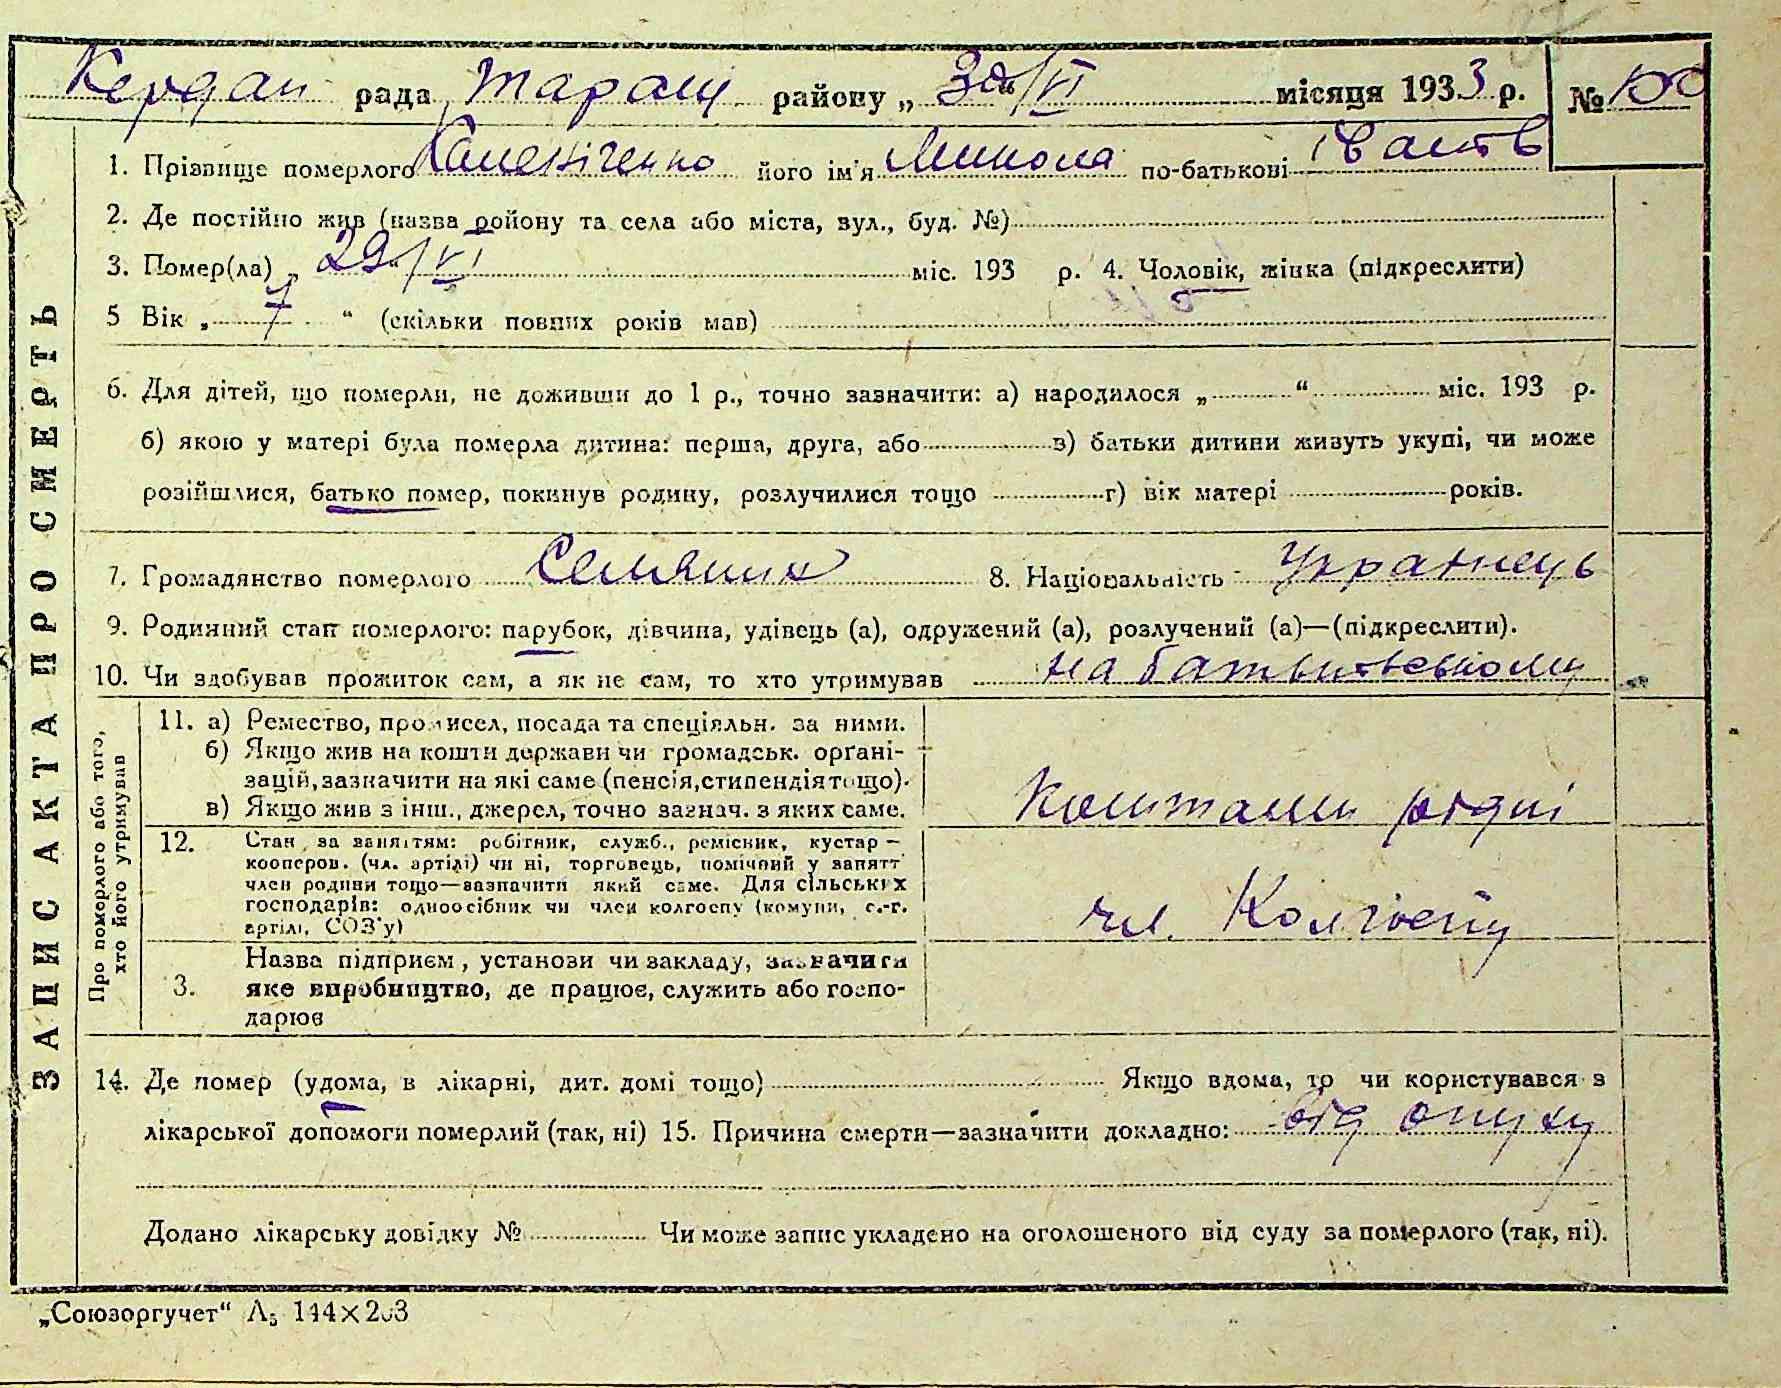 Кердан рада, Таращ району „ 30/VI " місяця 1933 р. № 100
1. Прізвище померлого його ім'я Микола по-батькові
2. Де постійно жив (назва ройону та села або міста, вул., буд. №)
3. Помер(ла) „ 29/VI " міс. 193 р. 4. Чоловік, жінка (підкреслити)
5 Вік „ 7 " (скільки повних років мав)
6. Для дітей, що померли, не доживши до 1 р., точно зазначити: а) народилося „ " міс. 193 р.
б) якою у матері була померла дитина: перша, друга, або в) батьки дитини живуть укупі, чи може
розійшлися, батько помер, покинув родину, розлучилися тощо г) вік матері років.
7. Громадянство померлого 8. Національність Українець
9. Родинний стан померлого: парубок, дівчина, удівець (а), одружений (а), розлучений (а)—(підкреслити).
10. Чи здобував прожиток сам, а як не сам, то хто утримував на
ЗАПИС АКТА ПРО СМЕРТЬ
Про померлого або того,
хто його утримував
11. а) Ремество, промисел, посада та спеціяльн. за ними.
б) Якщо жив на кошти держави чи громадськ. орґані-
зацій, зазначити на які саме (пенсія, стипендія тощо).
в) Якщо жив з інш., джерел, точно зазнач. з яких саме.
коштами рідні
12. Стан за занятям: робітник, служб., ремісник, кустар —
кооперов. (чл. артілі) чи ні, торговець, помічний у занятт
член родини тощо—зазначити який саме. Для сільських
господарів: одноосібник чи член колгоспу (комуни, с.-г.
артілі, СОЗ'у)
чл. Колгоспу
3. Назва підприєм, установи чи закладу, зазначити
яке виробництво, де працює, служить або госпо-
дарює
14. Де помер (удома, в лікарні, дит. домі тощо) Якщо вдома, то чи користувався з
лікарської допомоги померлий (так, ні) 15. Причина смерти—зазначити докладно: від опуху
Додано лікарську довідку № Чи може запис укладено на оголошеного від суду за померлого (так, ні).
„Союзоргучет" А5 144×203